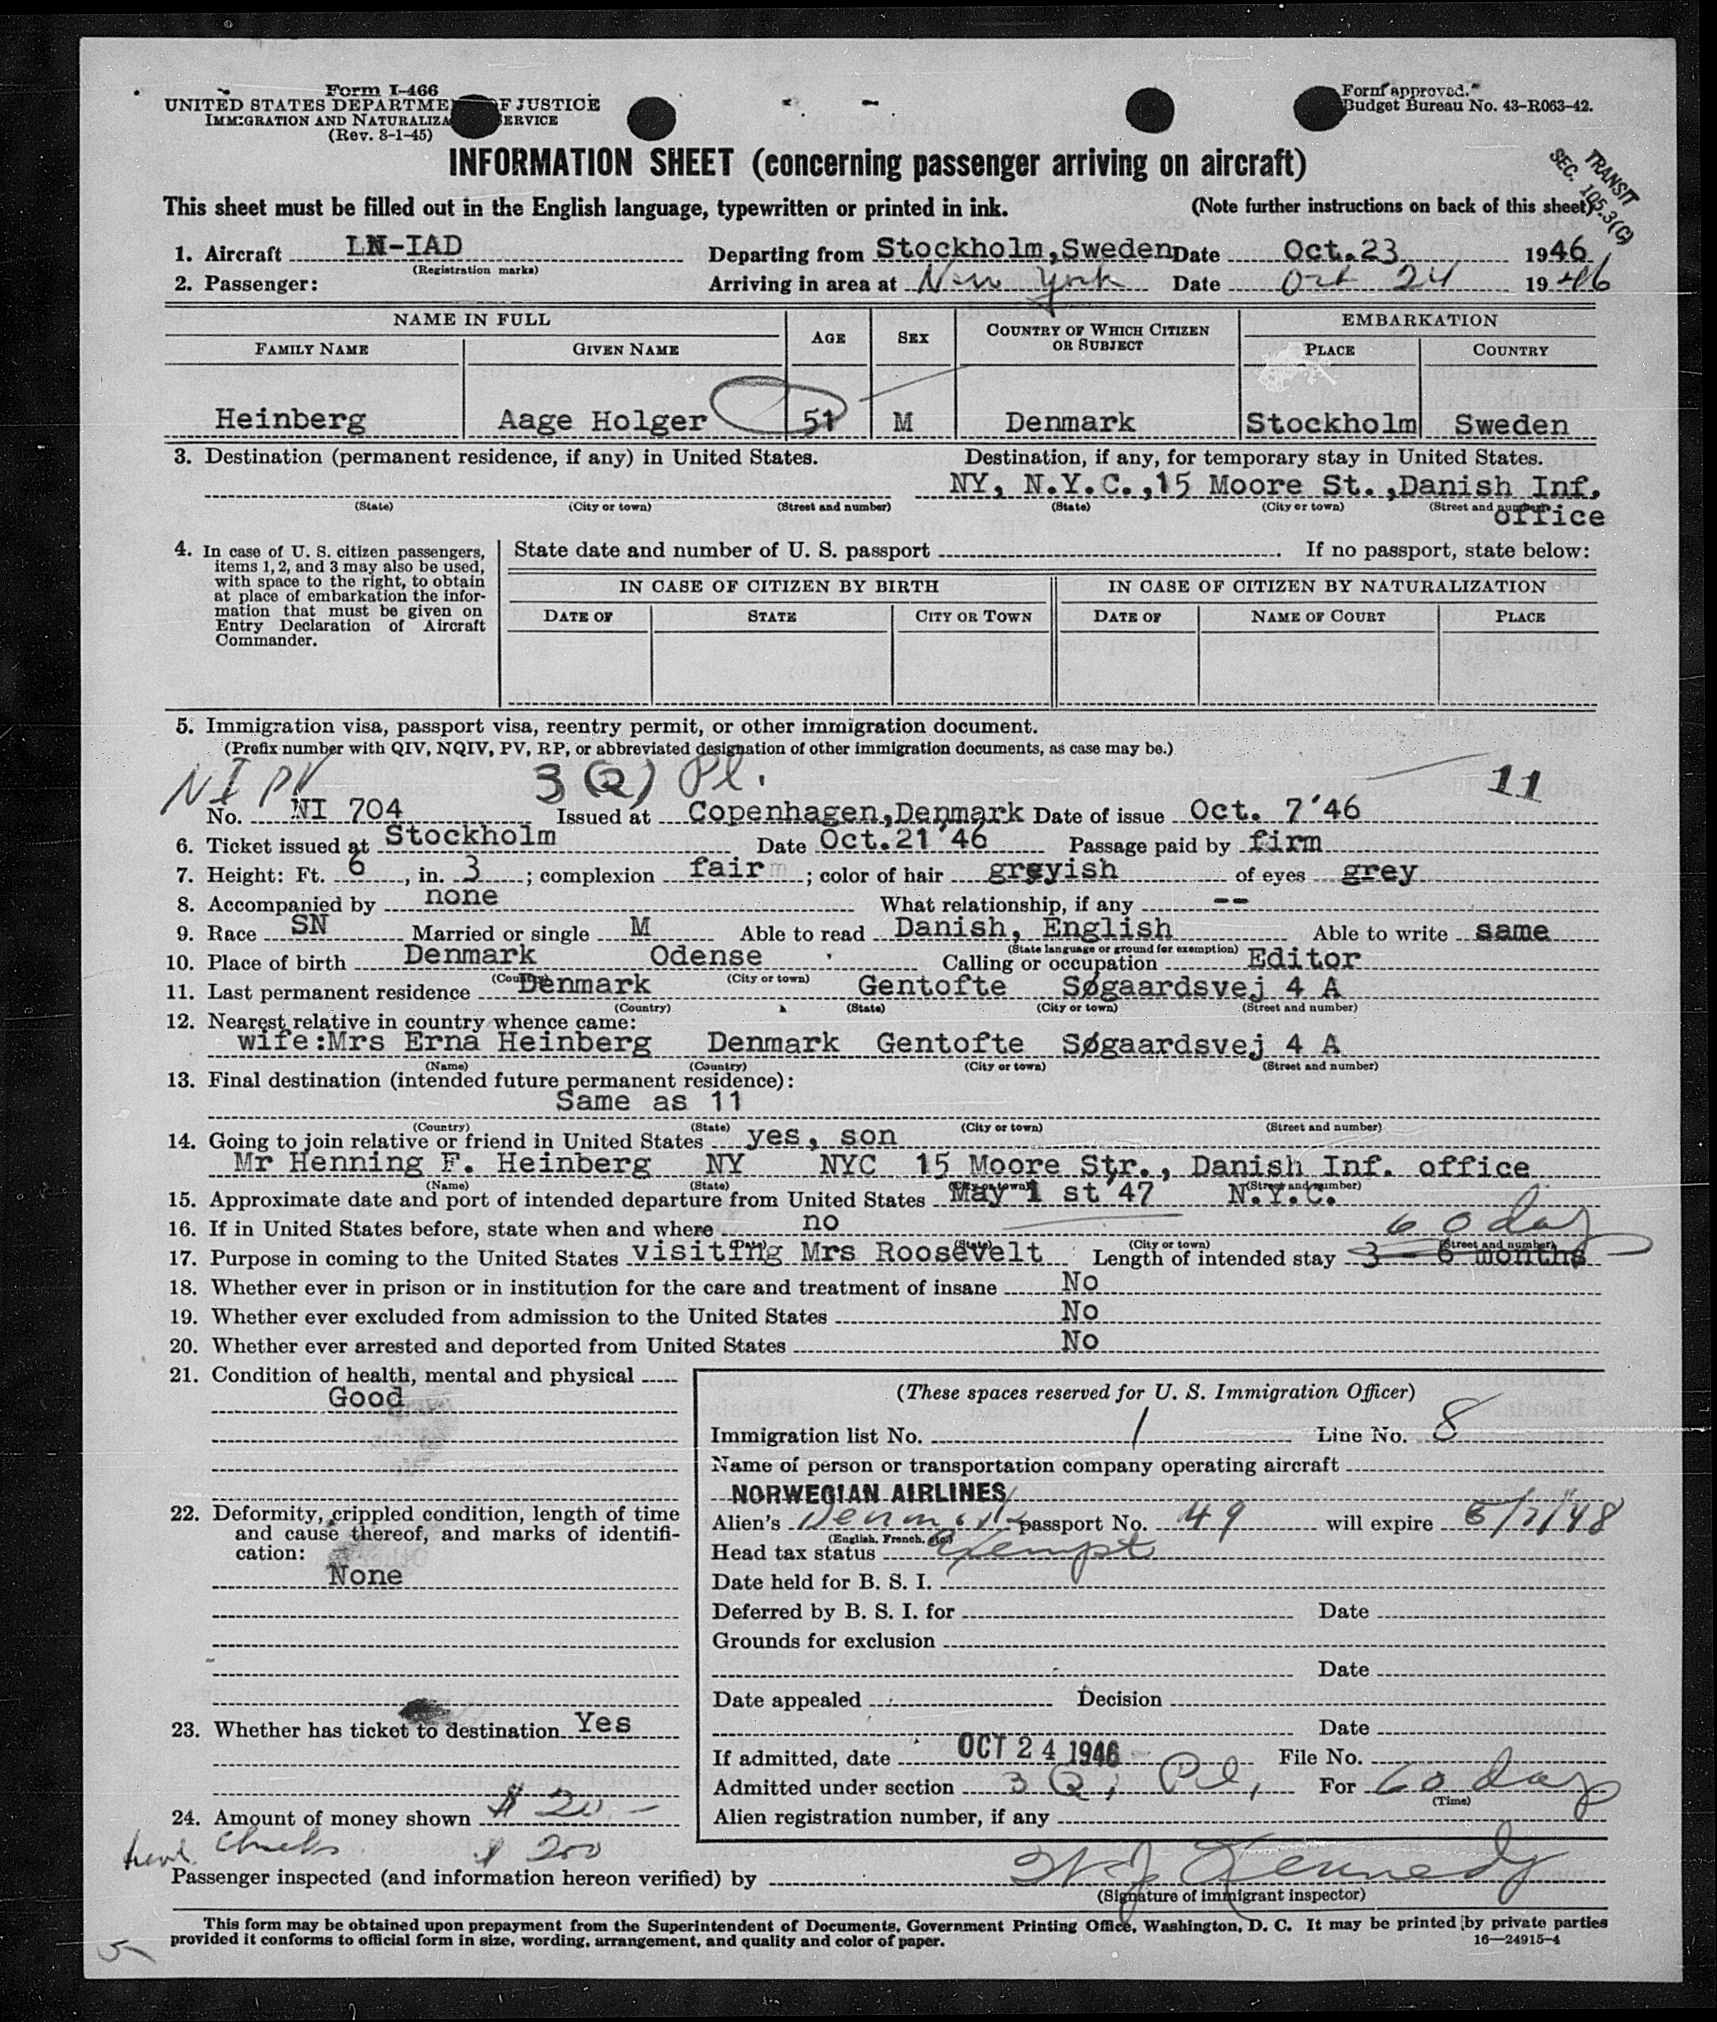 Form I-466
UNITED STATES DEPARTME F JUSTICE
IMMIGRATION AND NATURALIZA ERVICE
(Rev. 8-1-45)
Form approved.
Budget Bureau No. 43-R063-42.
TRANSIT
SEC. 105.3(C)
INFORMATION SHEET (concerning passenger arriving on aircraft)
This sheet must be filled out in the English language, typewritten or printed in ink. (Note further instructions on back of this sheet)
1. Aircraft LN-IAD Departing from Stockholm,Sweden Date Oct.23 1946
(Registration marks)
2. Passenger: Arriving in area at New York Date Oct 24 1946
NAME IN FULL AGE SEX COUNTRY OF WHICH CITIZEN OR SUBJECT EMBARKATION
FAMILY NAME GIVEN NAME PLACE COUNTRY
Heinberg Aage Holger 51 M Denmark Stockholm Sweden
3. Destination (permanent residence, if any) in United States. Destination, if any, for temporary stay in United States.
NY, N.Y.C.,15 Moore St.,Danish Inf.
(State) (City or town) (Street and number) (State) (City or town) (Street and number)
office
4. In case of U. S. citizen passengers, items 1, 2, and 3 may also be used, with space to the right, to obtain at place of embarkation the information that must be given on Entry Declaration of Aircraft Commander.
State date and number of U. S. passport . If no passport, state below:
IN CASE OF CITIZEN BY BIRTH IN CASE OF CITIZEN BY NATURALIZATION
DATE OF STATE CITY OR TOWN DATE OF NAME OF COURT PLACE
5. Immigration visa, passport visa, reentry permit, or other immigration document.
(Prefix number with QIV, NQIV, PV, RP, or abbreviated designation of other immigration documents, as case may be.)
NI PV 3(2) Pl. 11
No. NI 704 Issued at Copenhagen,Denmark Date of issue Oct. 7'46
6. Ticket issued at Stockholm Date Oct.21'46 Passage paid by firm
7. Height: Ft. 6, in. 3; complexion fair; color of hair greyish of eyes grey
8. Accompanied by none What relationship, if any --
9. Race SN Married or single M Able to read Danish, English Able to write same
(State language or ground for exemption)
10. Place of birth Denmark Odense Calling or occupation Editor
(Country) (City or town)
11. Last permanent residence Denmark Gentofte Søgaardsvej 4 A
(Country) (State) (City or town) (Street and number)
12. Nearest relative in country whence came:
wife:Mrs Erna Heinberg Denmark Gentofte Søgaardsvej 4 A
(Name) (Country) (City or town) (Street and number)
13. Final destination (intended future permanent residence):
Same as 11
(Country) (State) (City or town) (Street and number)
14. Going to join relative or friend in United States yes, son
Mr Henning F. Heinberg NY NYC 15 Moore Str., Danish Inf. office
(Name) (State) (City or town) (Street and number)
15. Approximate date and port of intended departure from United States May 1 st'47 N.Y.C.
16. If in United States before, state when and where no 60 day
(Date) (State) (City or town) (Street and number)
17. Purpose in coming to the United States visiting Mrs Roosevelt Length of intended stay 3 - 6 months
18. Whether ever in prison or in institution for the care and treatment of insane No
19. Whether ever excluded from admission to the United States No
20. Whether ever arrested and deported from United States No
21. Condition of health, mental and physical
Good
22. Deformity, crippled condition, length of time and cause thereof, and marks of identification:
None
23. Whether has ticket to destination Yes
24. Amount of money shown $ 20.—
Checks $ 200
(These spaces reserved for U. S. Immigration Officer)
Immigration list No. 1 Line No. 8
Name of person or transportation company operating aircraft
NORWEGIAN AIRLINES
Alien's Denmark passport No. 49 will expire 5/7/48
(English, French, etc.)
Head tax status Exempt
Date held for B. S. I.
Deferred by B. S. I. for Date
Grounds for exclusion
Date
Date appealed Decision
Date
If admitted, date OCT 24 1946 File No.
Admitted under section 3(2) Pl, For 60 day
(Time)
Alien registration number, if any
Passenger inspected (and information hereon verified) by W J Kennedy
(Signature of immigrant inspector)
This form may be obtained upon prepayment from the Superintendent of Documents, Government Printing Office, Washington, D. C. It may be printed by private parties
provided it conforms to official form in size, wording, arrangement, and quality and color of paper. 16—24915-4
5